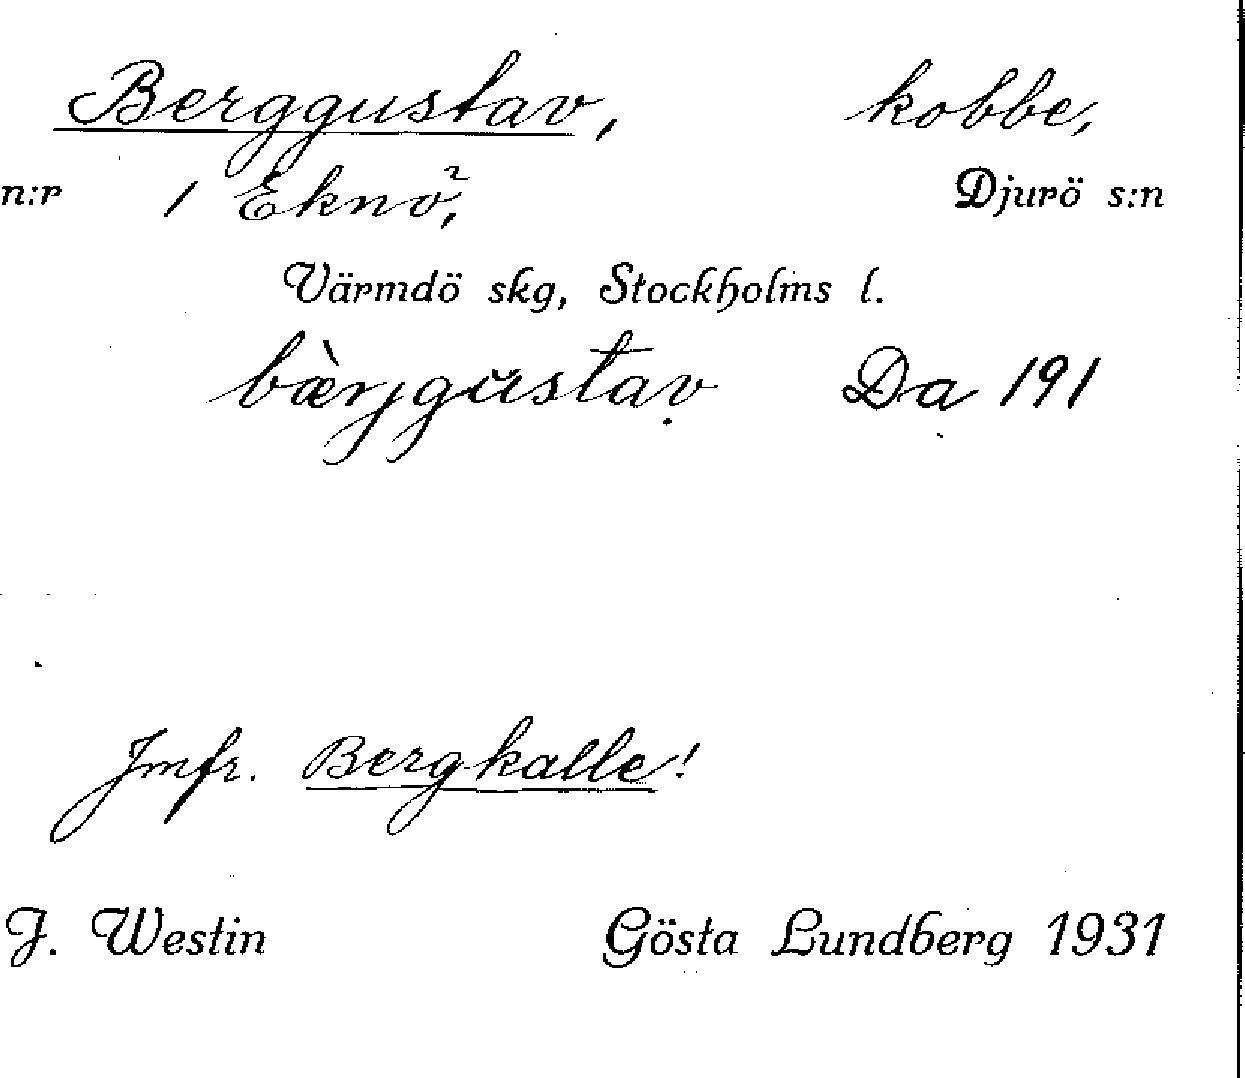 Berggustav, kobbe,
n:r 1 Eknö², Djurö s:n
Värmdö skg, Stockholms l.
bæ̀rjgustav Da 191
Jmfr. Bergkalle!
J. Westin Gösta Lundberg 1931